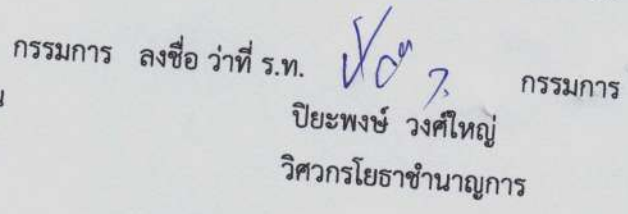 กรรมการ ลงชื่อ ว่าที่ ร.ท. กรรมการ
ปิยะพงษ์ วงศ์ใหญ่
วิศวกรโยธาชำนาญการ